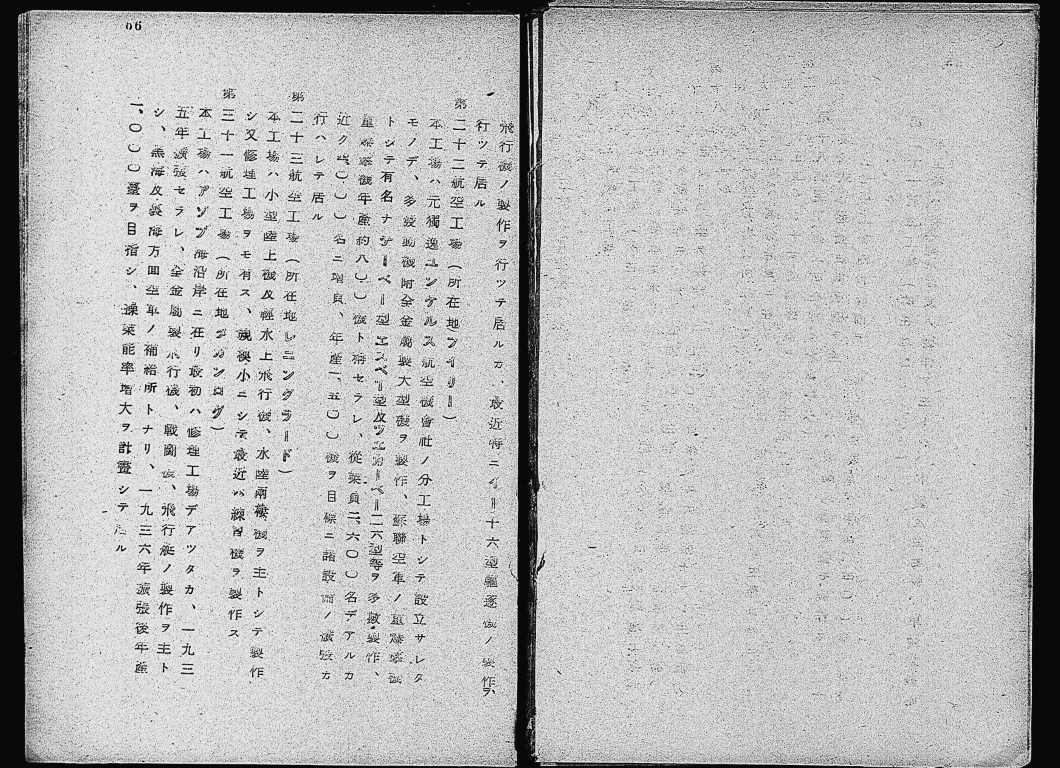 飛行機ノ製作ヲ行ツテ居ルガ、最近特ニイー十六型驅逐機ノ製作ヲ
行ツテ居ル
第二十二航空工場(所在地フイリー)
本工場ハ元獨逸ユンケルス航空機會社ノ分工場トシテ設立サレタ
モノデ、多發動機附全金屬製大型機ヲ製作、蘇聯空軍ノ重爆撃機
トシテ有名ナテーベー型エスベー型及ツエカーベー二六型等ヲ多數製作、
重爆撃機年産約八〇〇機ト稱セラレ、從業員二、六〇〇名デアルカ
近ク 〇〇〇名ニ増員、年産一、五〇〇機ヲ目標ニ諸設備ノ擴張カ
行ハレテ居ル
第二十三航空工場(所在地レニングラード)
本工場ハ小型陸上機及輕水上飛行機、水陸兩棲機ヲ主トシテ製作
シ又修理工場ヲモ有ス、規模小ニシテ最近ハ練習機ヲ製作ス
第三十一航空工場(所在地タガンログ)
本工場ハアゾフ海沿岸ニ在リ最初ハ修理工場デアツタカ、一九三
五年擴張セラレ、全金屬製飛行機、戰鬪機、飛行艇ノ製作ヲ主ト
シ、黑海及裏海方面空軍ノ補給所トナリ、一九三六年擴張後年産
一、〇〇〇臺ヲ目指シ、操業能率増大ヲ計畫シテ居ル
66